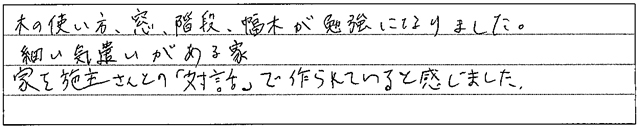 木の使い方、窓、階段、幅木が勉強になりました。
細い気遣いがある家
家を施主さんとの「対話」で作られていると感じました。